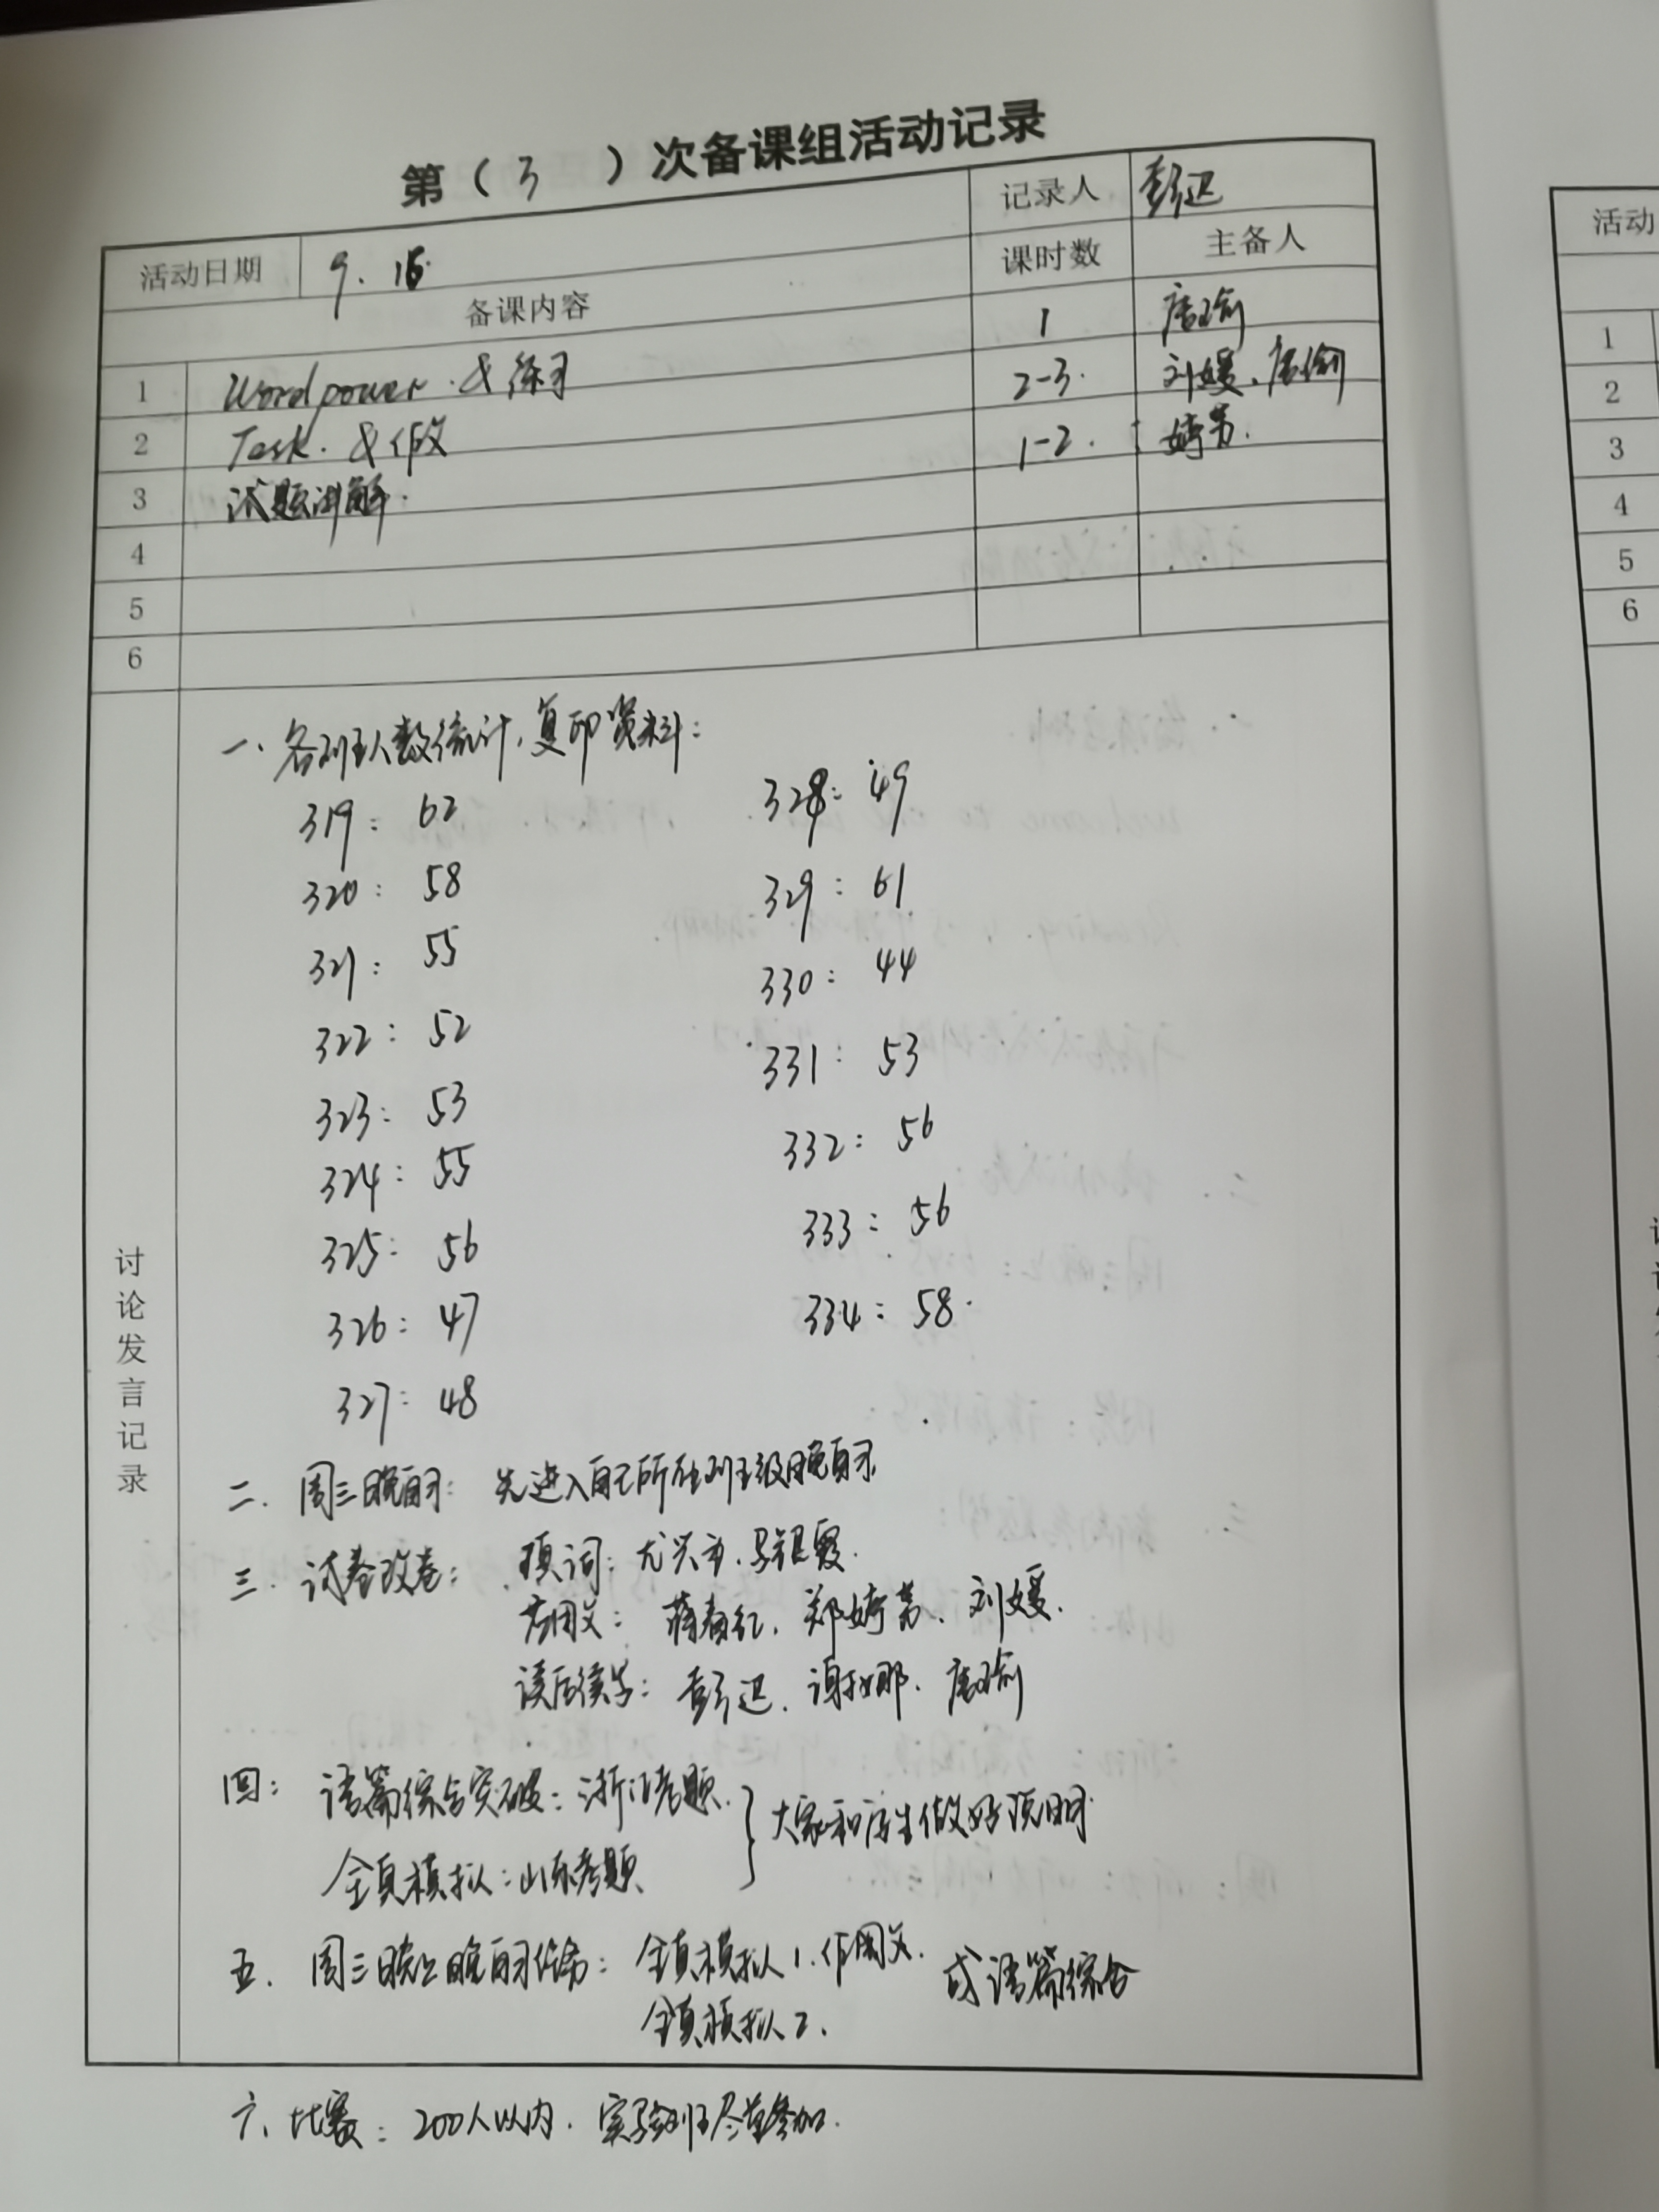 第（ 3 ）次备课组活动记录
活动日期 9.16 记录人 彭迅
备课内容 课时数 主备人
1 Word power. & 练习 1 唐瑜
2 Task. & 作文 2-3. 刘媛、唐瑜
3 试题讲解. 1-2. 婷芳.
4
5
6
讨论发言记录
一、各班人数统计，复印资料：
319： 62 328： 49
320： 58 329： 61
321： 55 330： 44
322： 52 331： 53
323： 53 332： 56
324： 55 333： 56
325： 56 334： 58.
326： 47
327： 48
二. 周三晚自习： 先进入自己所在班级晚自习
三. 试卷改卷： 填词：尤兴方.
应用文： 蒋春红, 郑婷芳、刘媛.
读后续写： 彭迅、谢 娜. 唐瑜
四： 语篇综合突破：浙江考题.
全真模拟：山东考题 } 大家和学生做好说明
五. 周三晚上晚自习任务： 全真模拟1.作用文. 或语篇综合
全真模拟2.
六、比赛： 200人以内. 实验班尽量参加.
活动
1
2
3
4
5
6